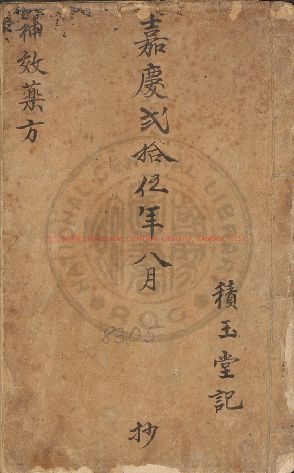 嘉慶弍拾伍年八月
抄
積玉堂記
效藥方
8305
NATIONAL CENTRAL LIBRARY, TAIWAN, R.O.C.